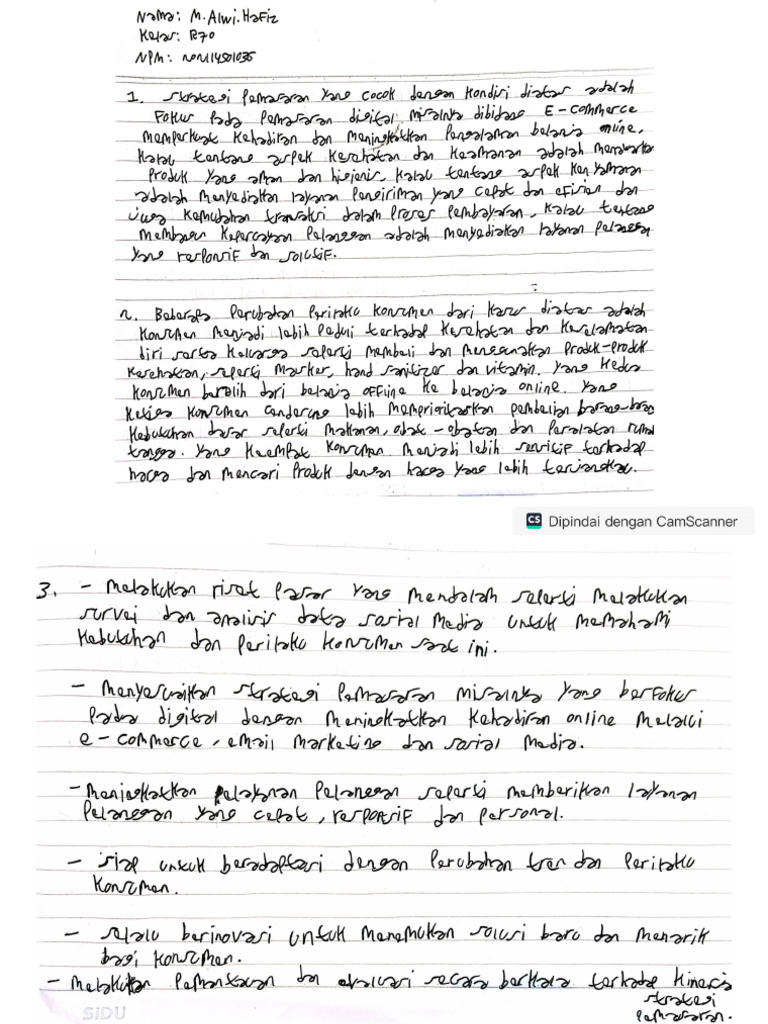 Nama: M. Alwi. Hafiz
Kelas: R70
NPM:
1. Strategi Pemasaran yang cocok dengan kondisi diatas adalah
Fokus pada pemasaran digital misalnya dibidang E-commerce
memperkuat kehadiran dan meningkatkan pengalaman belanja online.
Kalau tentang aspek kesehatan dan keamanan adalah menawarkan
Produk yang aman dan higienis, kalau tentang aspek kenyamanan
adalah menyediakan layanan pengiriman yang cepat dan efisien dan
juga kemudahan transaksi dalam proses pembayaran, kalau tentang
membangun kepercayaan pelanggan adalah menyediakan layanan pelanggan
yang responsif dan solutif.
2. Beberapa perubahan perilaku konsumen dari kasus diatas adalah
konsumen menjadi lebih peduli terhadap kesehatan dan keselamatan
diri serta keluarga seperti membeli dan menggunakan produk-produk
kesehatan, seperti masker, hand sanitizer dan vitamin. yang kedua
konsumen beralih dari belanja offline ke belanja online. yang
ketiga konsumen cenderung lebih memprioritaskan pembelian barang-barang
kebutuhan dasar seperti makanan, obat-obatan dan peralatan rumah
tangga. yang keempat konsumen menjadi lebih sensitif terhadap
harga dan mencari produk dengan harga yang lebih terjangkau.
CS Dipindai dengan CamScanner
3. - Melakukan riset pasar yang mendalam seperti melakukan
survei dan analisis data sosial media untuk memahami
kebutuhan dan perilaku konsumen saat ini.
- Menyesuaikan strategi pemasaran misalnya yang berfokus
pada digital dengan meningkatkan kehadiran online melalui
e-commerce, email marketing dan sosial media.
- Meningkatkan pelayanan pelanggan seperti memberikan layanan
pelanggan yang cepat, responsif dan personal.
- siap untuk beradaptasi dengan perubahan tren dan perilaku
konsumen.
- selalu berinovasi untuk menemukan solusi baru dan menarik
bagi konsumen.
- Melakukan pemantauan dan evaluasi secara berkala terhadap kinerja
strategi
pemasaran.
SiDU